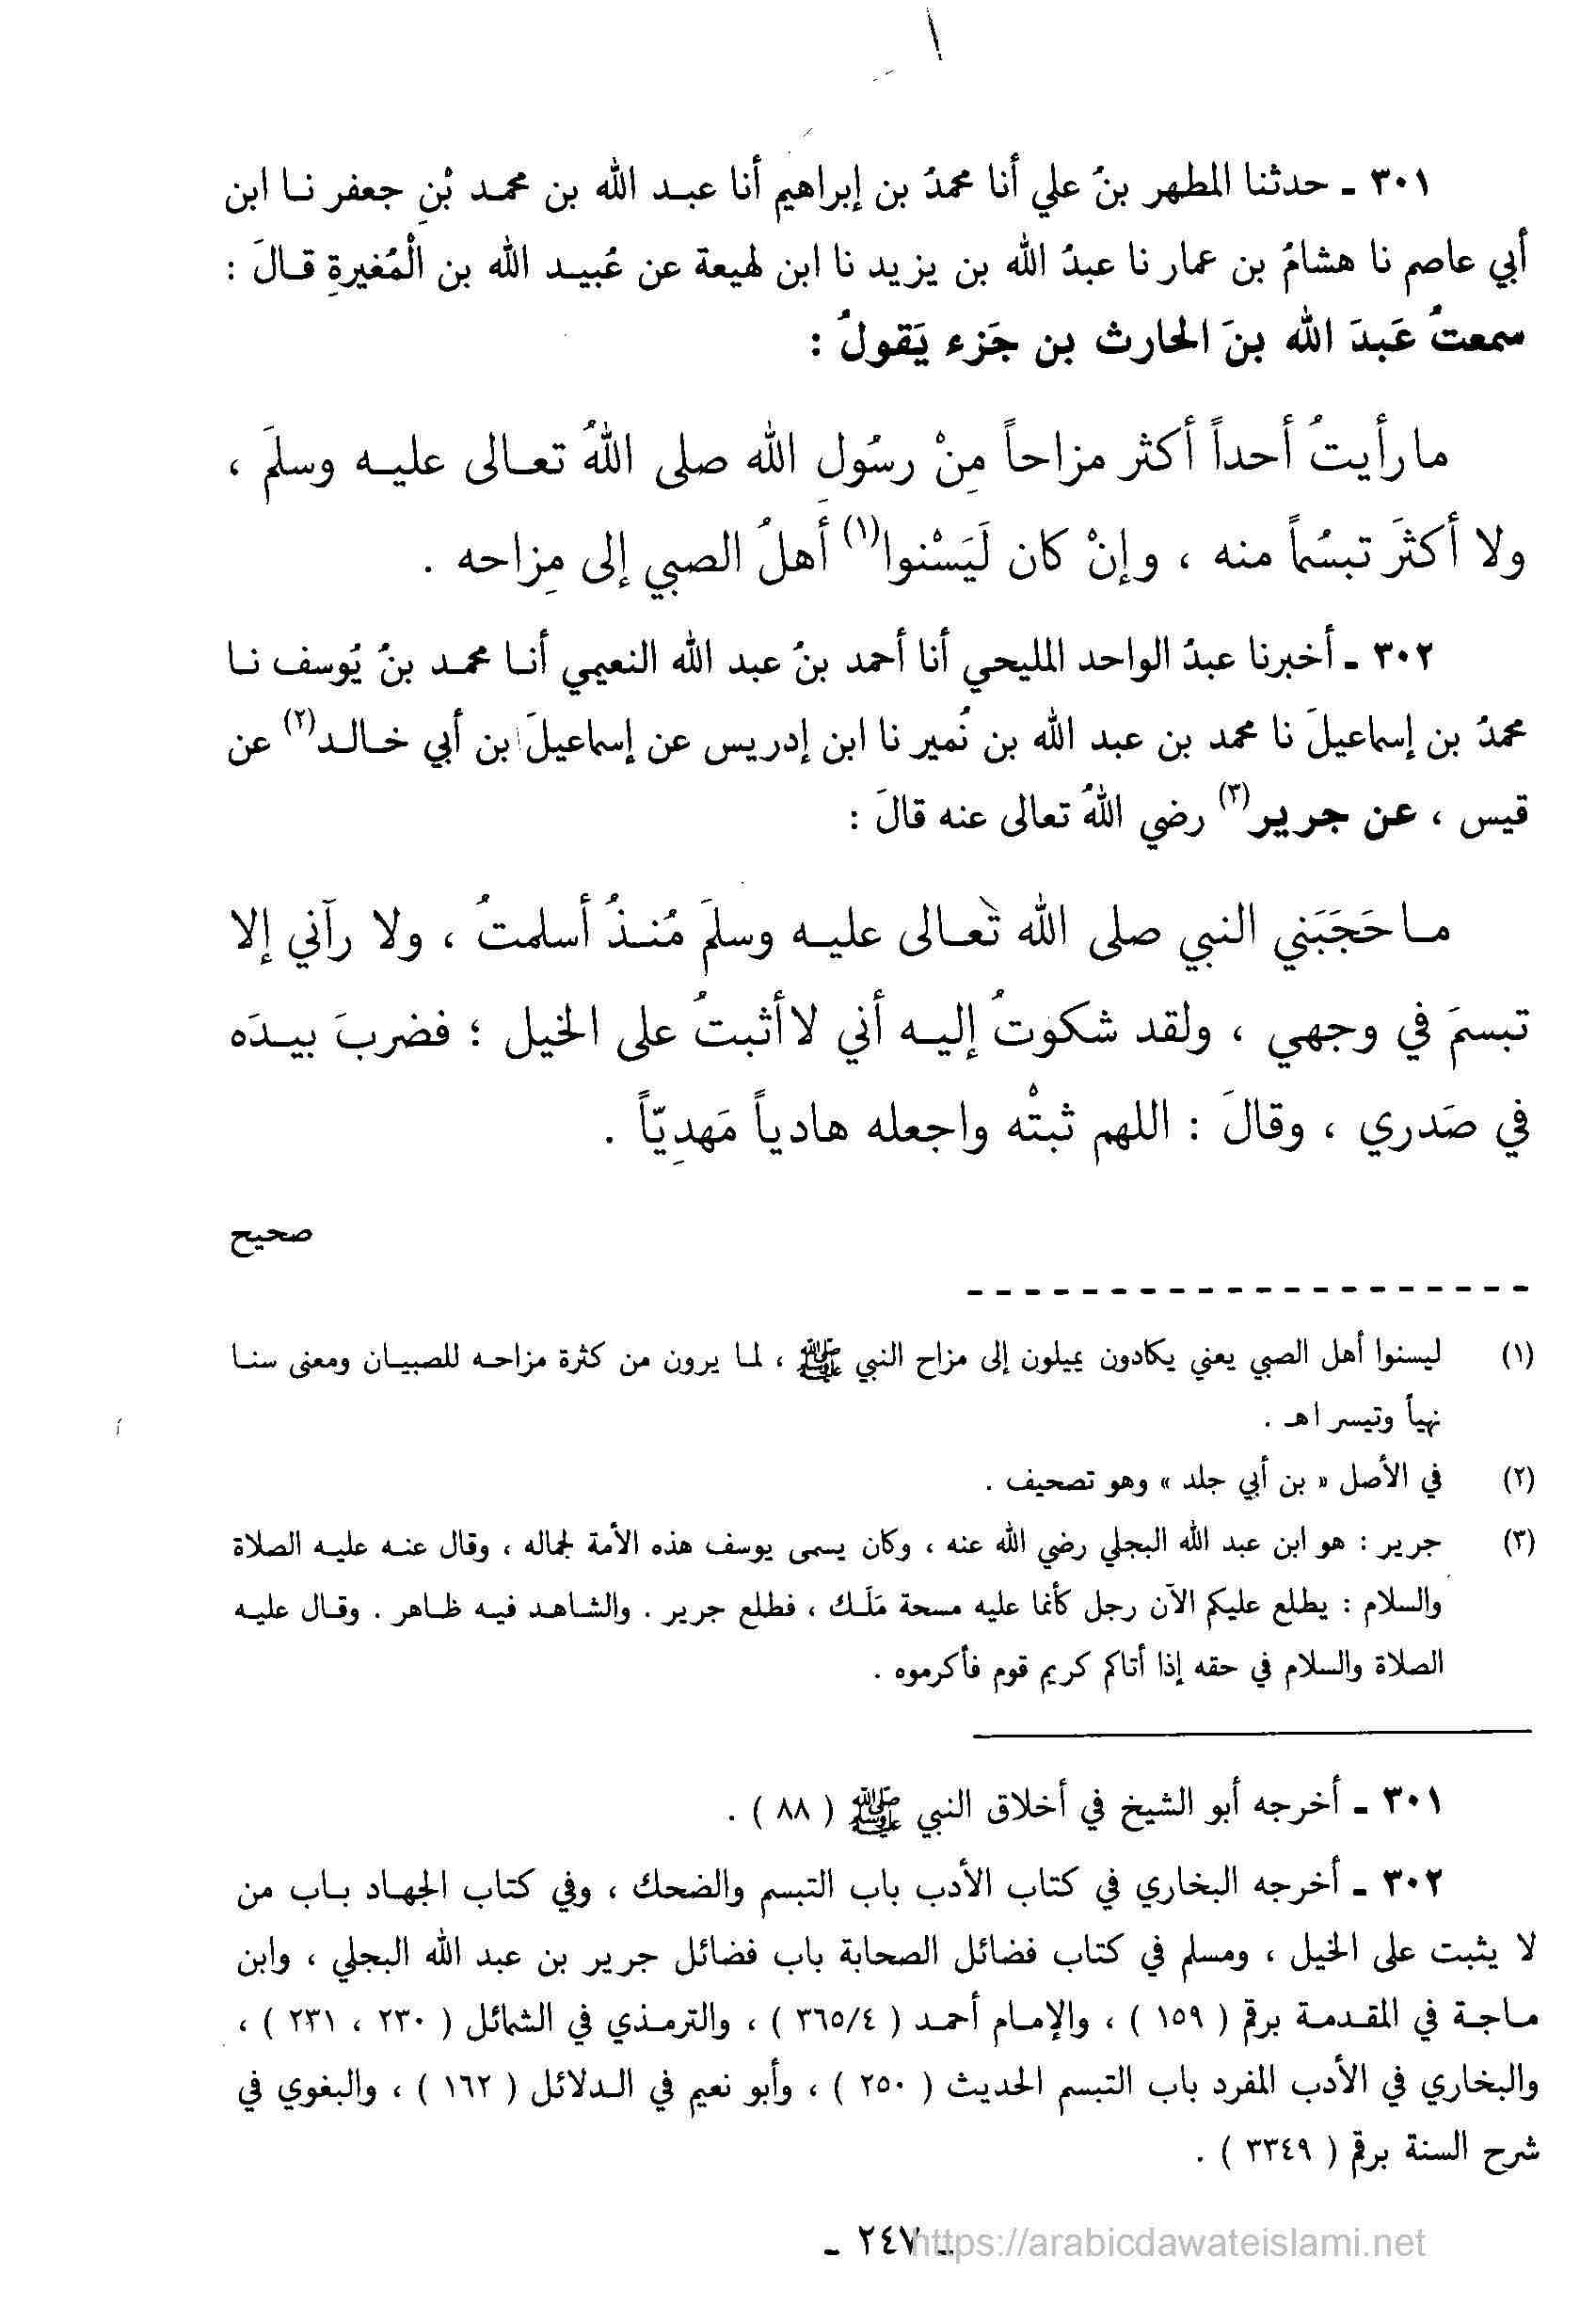 ٣٠١ ـ حدثنا المطهر بنُ علي أنا محمدُ بن إبراهيم أنا عبـد الله بن محمـد بْنِ جعفر نـا ابن
أبي عاصم نا هشامُ بن عمار نا عبدُ الله بن يزيد نا ابن لهيعة عن عُبيـد الله بن الْمُغيرةِ قـالَ :
سمعتُ عَبدَ الله بنَ الحارث بن جَزء يَقولُ :
ما رأيتُ أحداً أكثر مزاحاً مِنْ رسُول الله صلى اللهُ تعـالى عليـه وسلمَ ،
ولا أكثَر تبسُماً منه ، وإنْ كان لَيَسْنوا(١) أَهلُ الصبي إلى مِزاحه .
٣٠٢ ـ أخبرنا عبدُ الواحد المليحي أنا أحمد بنُ عبد الله النعيمي أنـا محمـد بنُ يُوسف نـا
محمدُ بن إسماعيلَ نا محمد بن عبد الله بن نُمير نا ابن إدريس عن إسماعيلَ بن أبي خـالـد(٢) عن
قيس ، عن جرير(٣) رضي اللهُ تعالى عنه قالَ :
مـا حَجَبَني النبي صلى الله تعـالى عليـه وسلمَ مُنـذُ أسلمتُ ، ولا رآني إلا
تبسمَ في وجهي ، ولقد شكوتُ إليـه أني لا أثبتُ على الخيل ؛ فضربَ بيـدَه
في صَدري ، وقالَ : اللهم ثبتْه واجعله هادياً مَهدِيّاً .
صحيح
(١) ليسنوا أهل الصبي يعني يكادون يميلون إلى مزاح النبي ﷺ ، لمـا يرون من كثرة مزاحـه للصبيـان ومعنى سنـا
نهيأ وتيسر اهـ .
(٢) في الأصل « بن أبي جلد » وهو تصحيف .
(٣) جرير : هو ابن عبد الله البجلي رضي الله عنه ، وكان يسمى يوسف هذه الأمة لجماله ، وقال عنـه عليـه الصلاة
والسلام : يطلع عليكم الآن رجل كأنما عليه مسحة مَلَـك ، فطلع جرير . والشاهـد فيـه ظـاهر . وقـال عليـه
الصلاة والسلام في حقه إذا أتاكم كريم قوم فأكرموه .
٣٠١ ـ أخرجه أبو الشيخ في أخلاق النبي ﷺ ( ٨٨ ) .
٣٠٢ ـ أخرجه البخاري في كتاب الأدب باب التبسم والضحك ، وفي كتاب الجهـاد بـاب من
لا يثبت على الخيل ، ومسلم في كتاب فضائل الصحابة باب فضائل جرير بن عبد الله البجلي ، وابن
مـاجـة في المقـدمـة برقم ( ١٥٩ ) ، والإمـام أحمـد ( ٣٦٥/٤ ) ، والترمـذي في الشمائل ( ٢٣٠ ، ٢٣١ ) ،
والبخاري في الأدب المفرد باب التبسم الحديث ( ٢٥٠ ) ، وأبو نعيم في الـدلائل ( ١٦٢ ) ، والبغوي في
شرح السنة برقم ( ٣٣٤٩ ) .
ـ ٢٤٧ ـ
https://arabicdawateislami.net